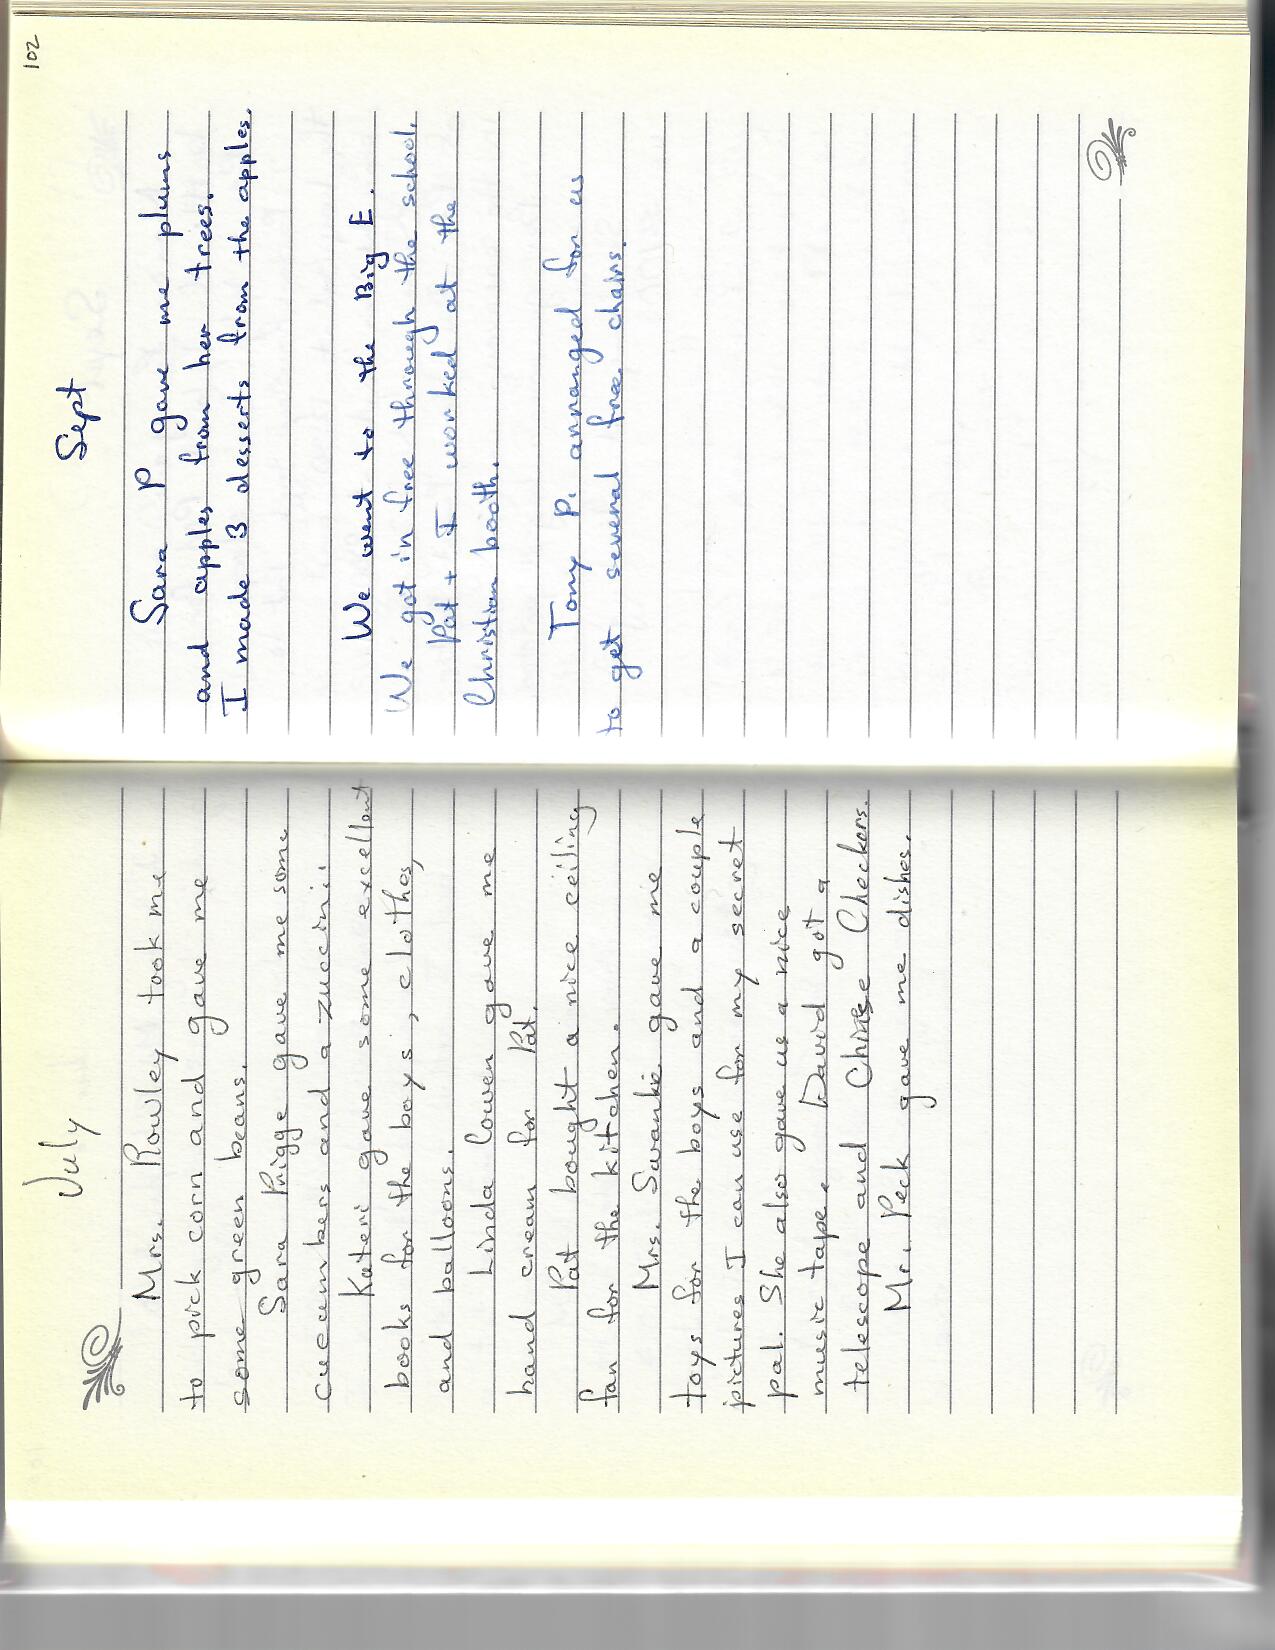 July
Mrs. Rowley took me
to pick corn and gave me
some green beans.
Sara Prigge gave me some
cucumbers and a zuccini.
Kateri gave some excellent
books for the boys, clothes,
and balloons.
Linda Cowen gave me
hand cream for Pat.
Pat bought a nice ceiling
fan for the kitchen.
Mrs. Swankie gave me
toys for the boys and a couple
pictures I can use for my secret
pal. She also gave us a nice
music tape. David got a
telescope and Chinese Checkers.
Mr. Peck gave me dishes.
102
Sept
Sara P gave me plums
and apples from her trees.
I made 3 desserts from the apples.
We went to the Big E.
We got in free through the school.
Pat + I worked at the
Christian booth.
Tony P. arranged for us
to get several free chairs.